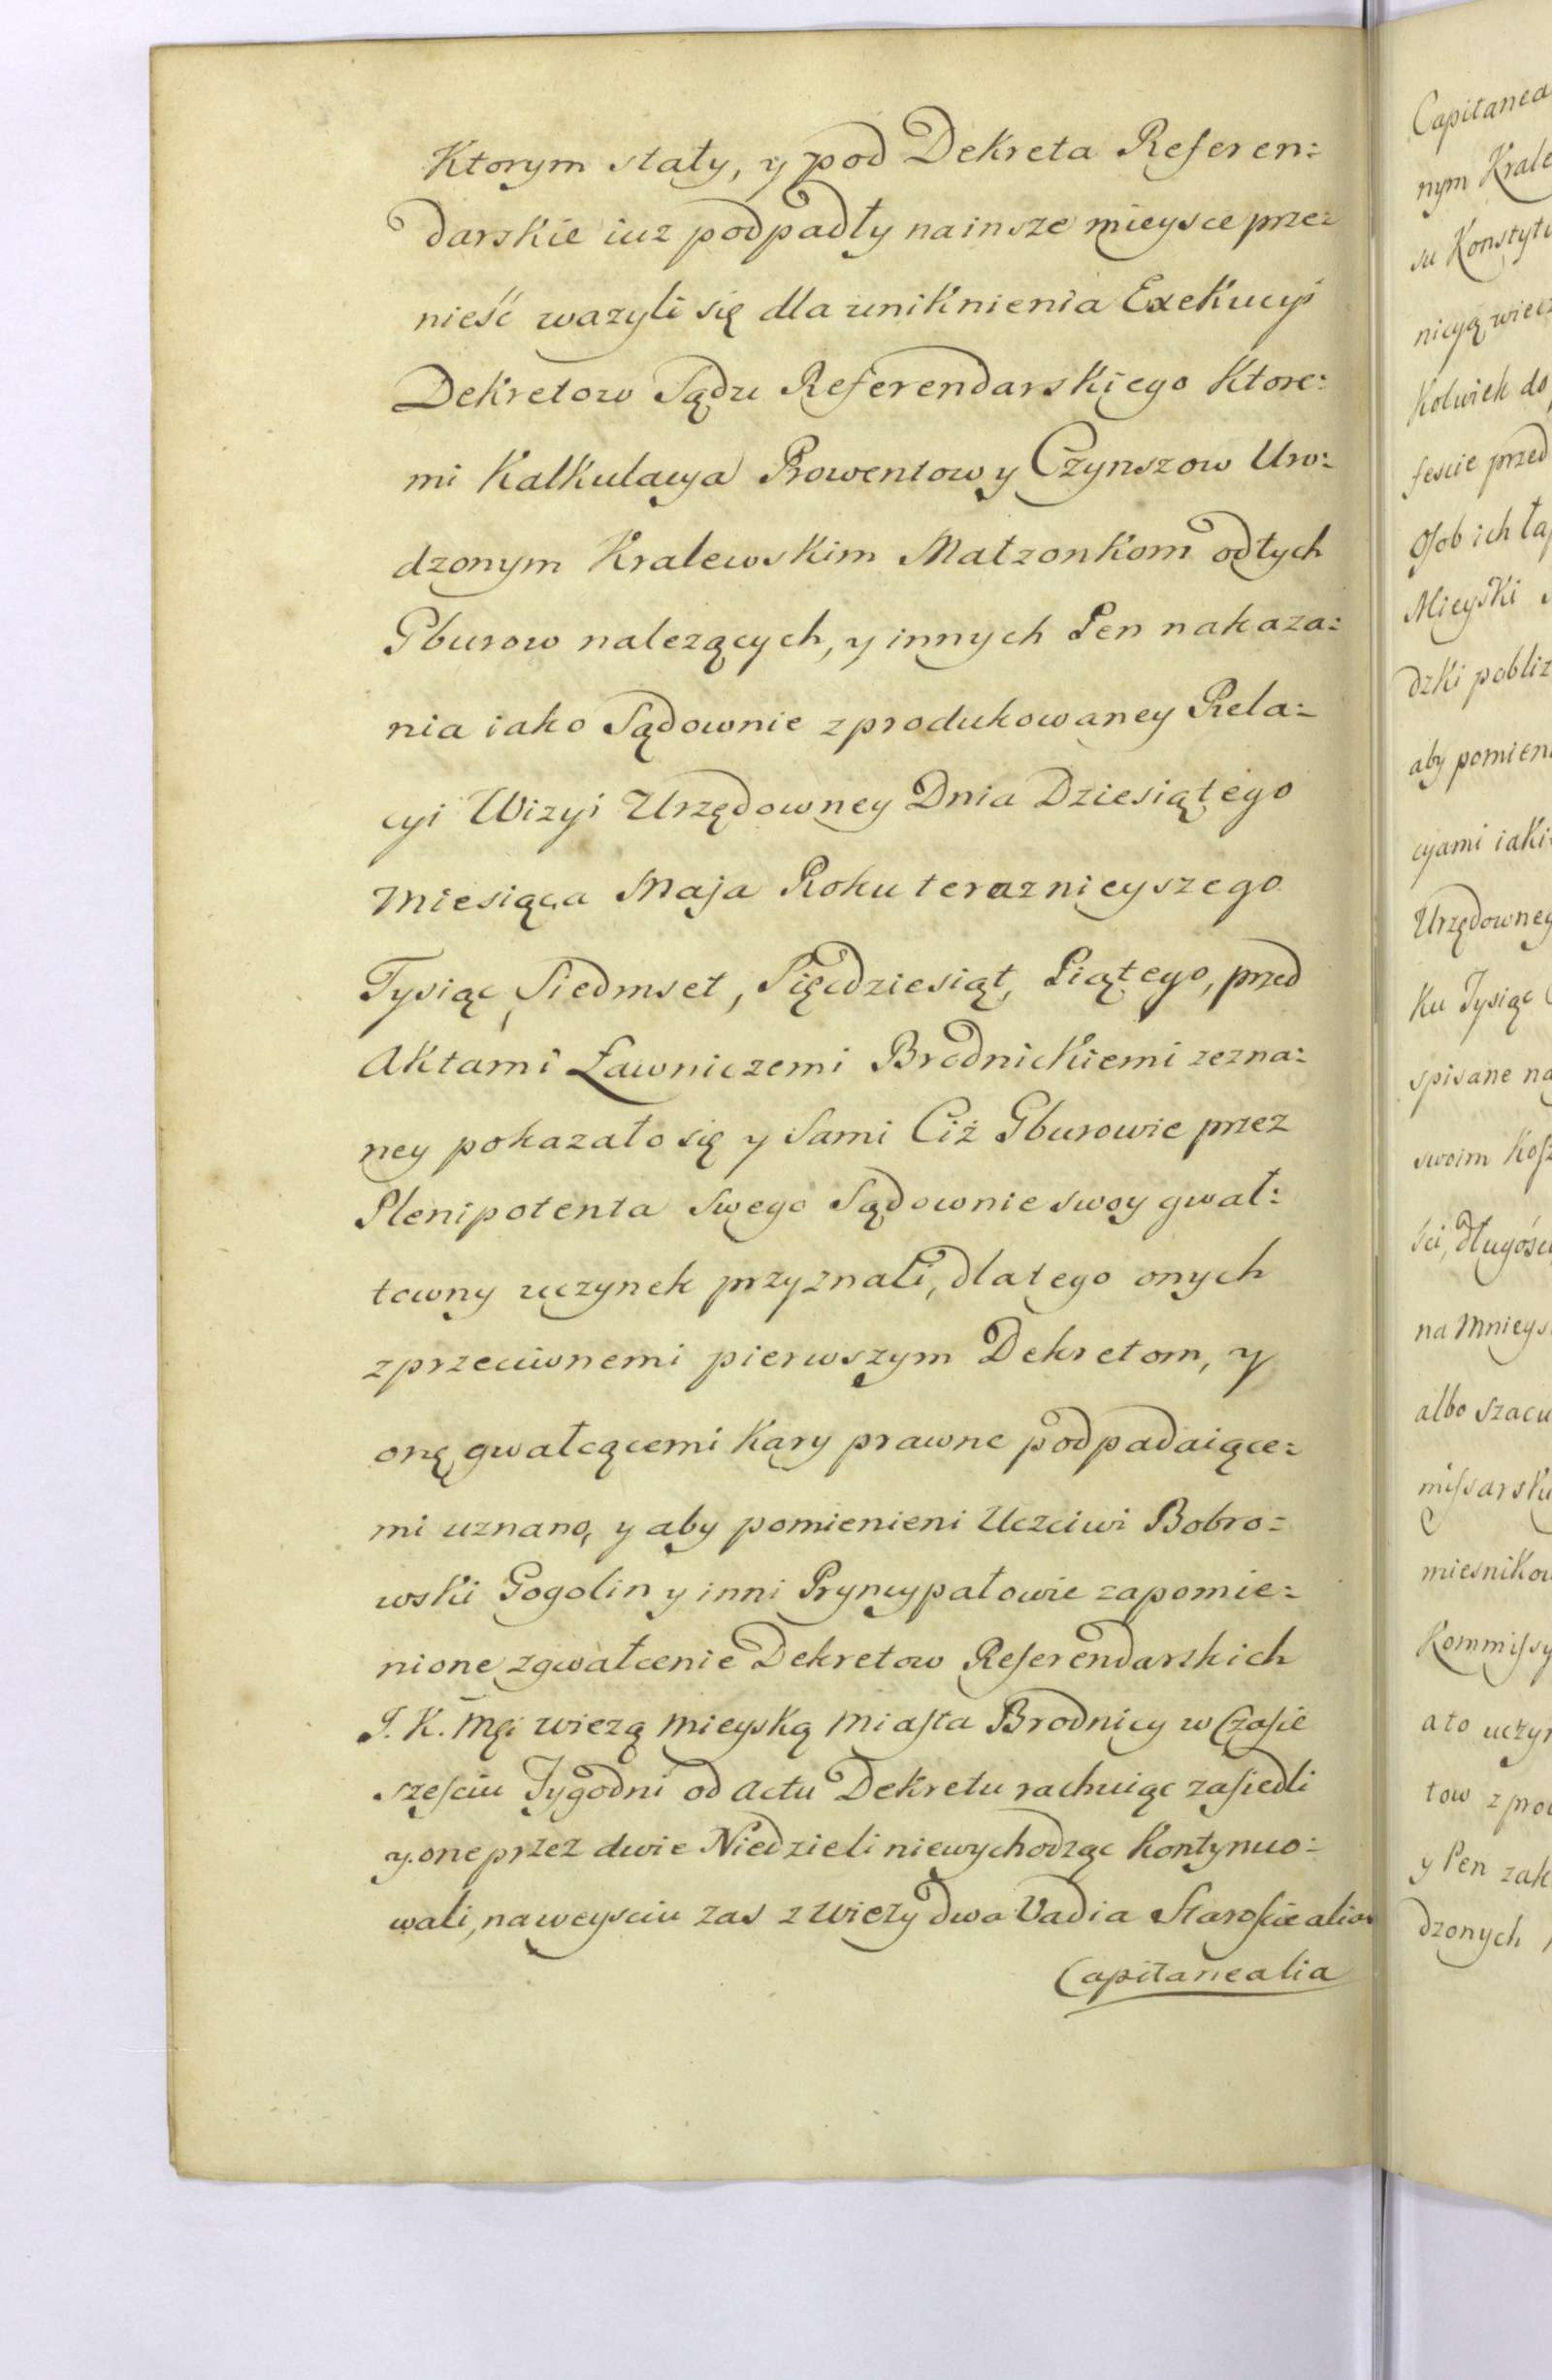 Ktorym stały, y pod Dekreta Referen:
darskie iuz podpadły na insze mieysce prze:
nieść wazyli się dla uniknienia Exekucyi
Dekretow Sądu Referendarskiego Ktore:
mi Kalkulacya Prowentow y Czynszow Uro:
dzonym Kralewskim Małzonkom od tych
Gburow nalezących, y innych Pen nakaza:
nia iako Sądownie zprodukowaney Rela:
cyi Wizyi Urzędowney Dnia Dziesiątego
Miesiąca Maja Roku teraznieyszego
Tysiąc Siedmset, Pięcdziesiąt, Piątego, przed
Aktami Ławniczemi Brodnickiemi zezna:
ney pokazało się y Sami Ciż Gburowie przez
Plenipotenta Swego Sądownie swoy gwał:
towny uczynek przyznali, dlatego onych
zprzeciwnemi pierwszym Dekretom, y
onę gwałcącemi Kary prawne podpadaiące:
mi uznano, y aby pomienieni Uczciwi Bobro:
wski Gogolin y inni Pryncypałowie zapomie:
nione zgwałcenie Dekretow Referendarskich
J. K. Mći wiezą Mieyską Miasta Brodnicy w Czasie
szesciu Tygodni od Actu Dekretu rachuiąc zasiedli
y one przez dwie Niedzieli niewychodząc Kontynuo:
wali, na weysciu zas z Wiezy dwa Vadia Staroscie alias
Capitanealia
Capitanea
nym Krale
su Konstytu
nicyą wiecz
Kolwiek do
fescie przed
Osob ich ła
Mieyski
dzki pobliz
aby pomien
cyami iaki
Urzędowney
Ku Tysiąc
spisane na
swoim Kosz
ści, długośc
na Mnieys
albo szacu
missarsk
miesnikow
Kommissy
a to uczyn
tow z pro
y Pen zak
dzonych